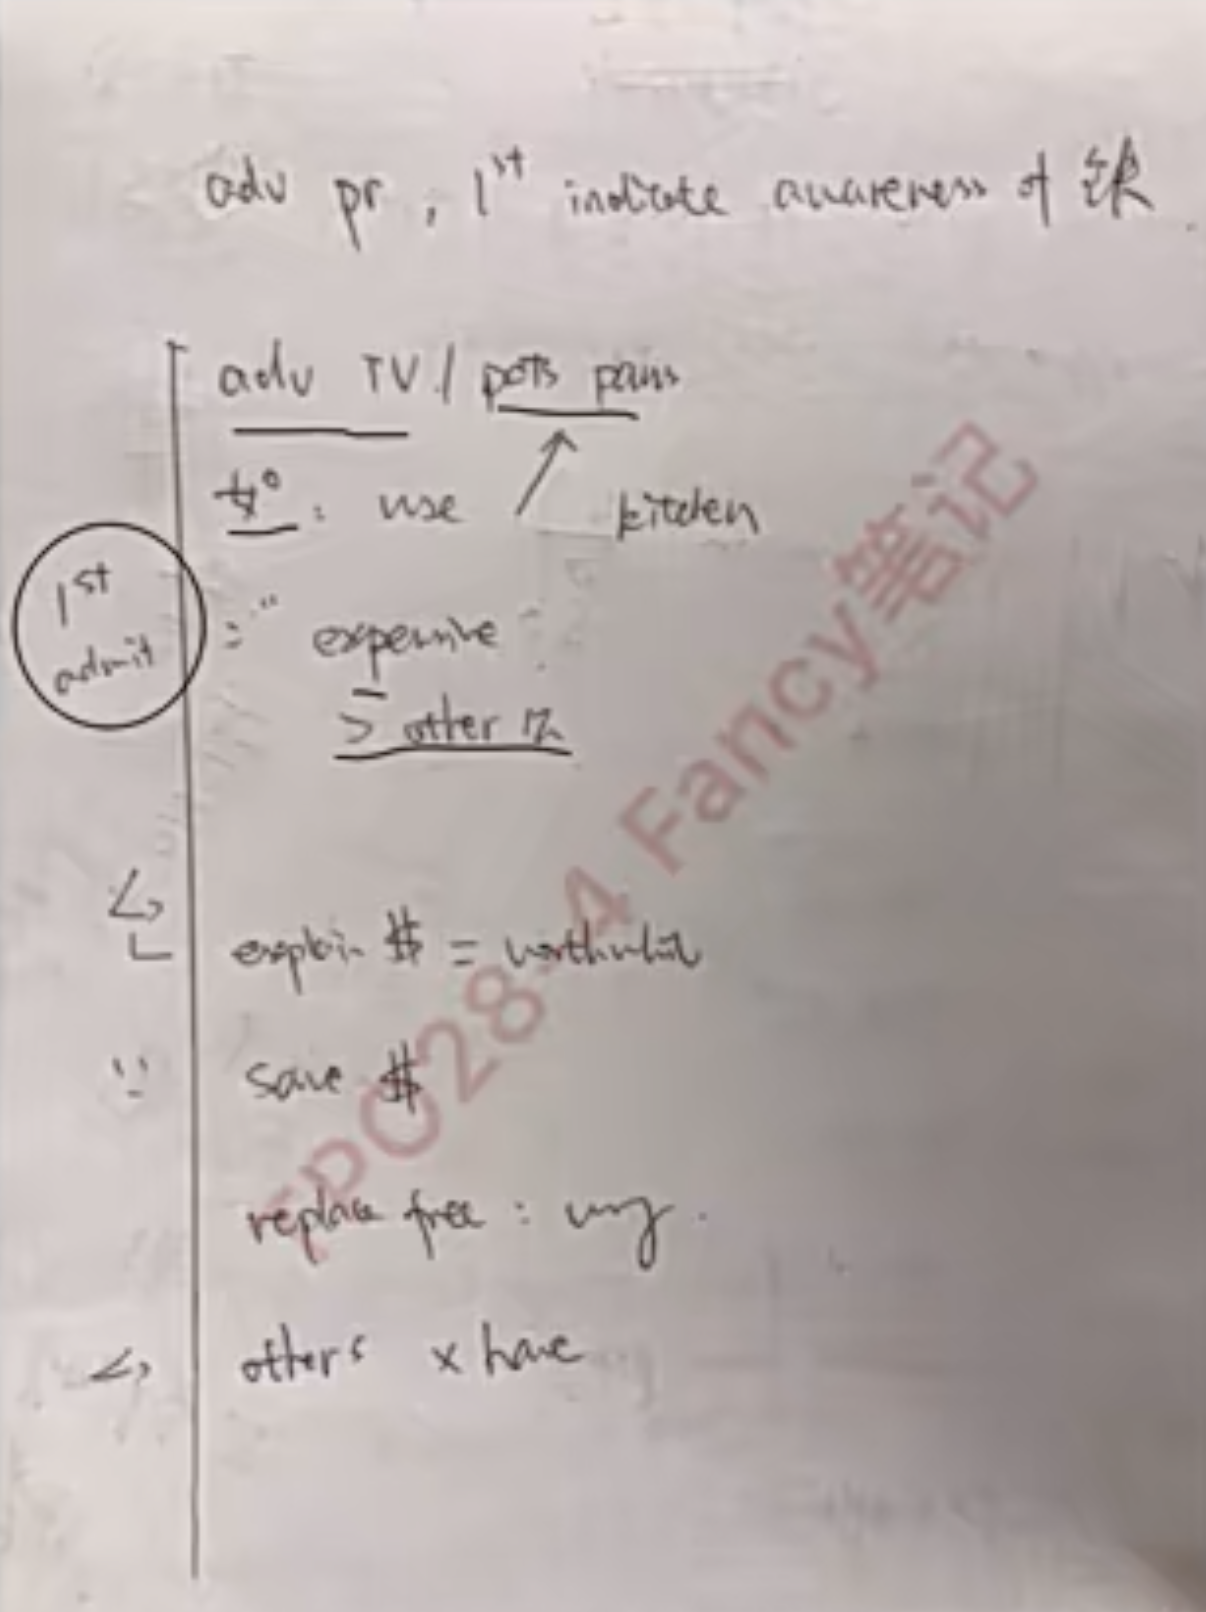 adv pr , 1st indicate awareness of 缺
adv TV / pots pans
女° : use ↗ kitchen
1st
admit
: " expensive
> other
explain $ = worthwhile
save $
replace free :
others x have
TPO28-4 Fancy笔记